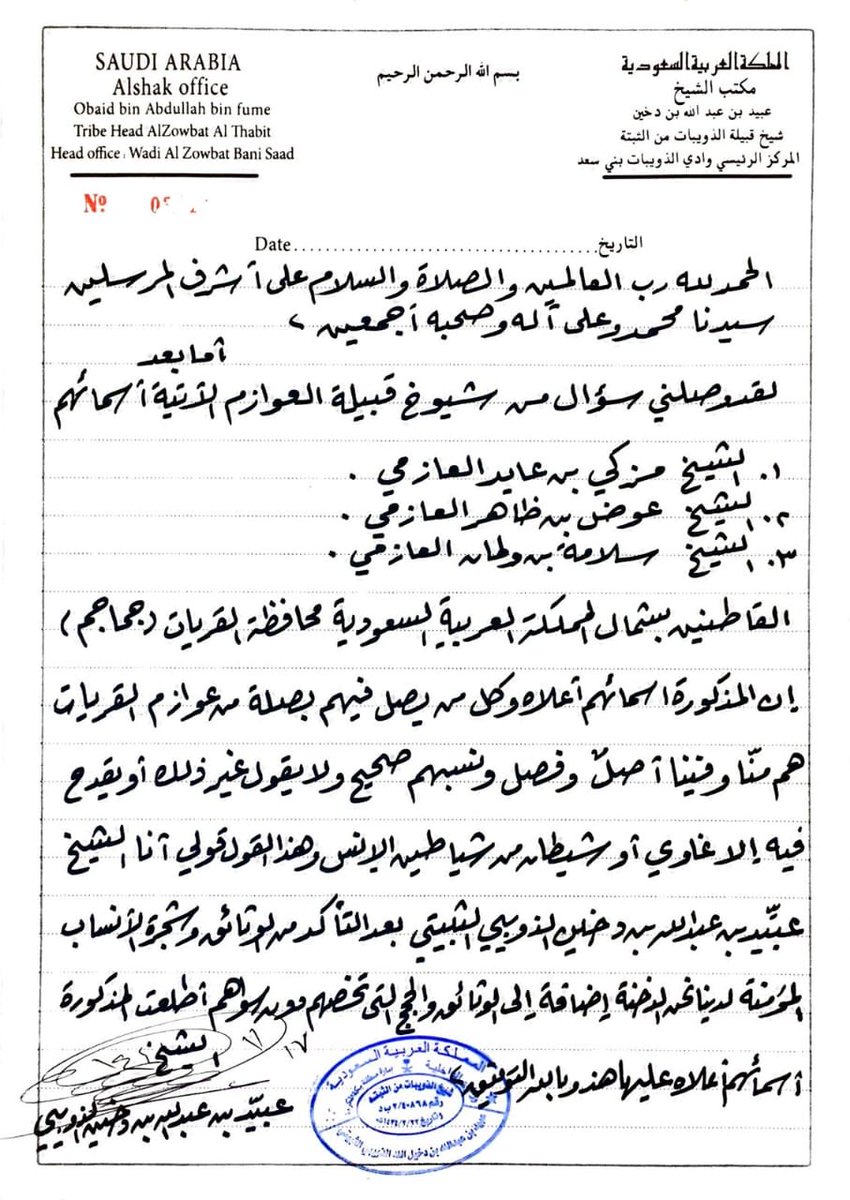 SAUDI ARABIA
Alshak office
Obaid bin Abdullah bin fume
Tribe Head AlZowbat Al Thabit
Head office : Wadi Al Zowbat Bani Saad
بسم الله الرحمن الرحيم
المملكة العربية السعودية
مكتب الشيخ
عبيد بن عبد الله بن دخين
شيخ قبيلة الذويبات من الثبتة
المركز الرئيسي وادي الذويبات بني سعد
Nº
Date......................................التاريخ
الحمد لله رب العالمين والصلاة والسلام على أشرف المرسلين
سيدنا محمد وعلى آله وصحبه أجمعين ،
أما بعد
لقد وصلني سؤال من شيوخ قبيلة العوازم الآتية أسمائهم
١. الشيخ مزكي بن عايد العازمي .
٢. الشيخ عوض بن ظاهر العازمي .
٣. الشيخ سلامة بن ولمان العازمي .
القاطنين بشمال المملكة العربية السعودية محافظة القريات (جماجم)
إن المذكورة اسمائهم أعلاه وكل من يصل فيهم بصلة من عوازم القريات
هم منّا وفينا أصلٌ وفصل ونسبهم صحيح ولا يقول غير ذلك أو يقدح
فيه إلا غاوي أو شيطان من شياطين الإنس وهذا القول قولي أنا الشيخ
عبيّد بن عبدالله بن دخين الذويبي الثبيتي بعد التأكد من الوثائق وشجرة الأنساب
المؤمنة لدينا نحن الدخنة إضافة إلى الوثائق والحجج التي تخصهم دون سواهم أطلعت المذكورة
أسمائهم أعلاه عليها هذا وبالله التوفيق ،
الشيخ
عبيّد بن عبدالله بن دخين الذويبي
المملكة العربية السعودية
شيخ الذويبات من الثبتة